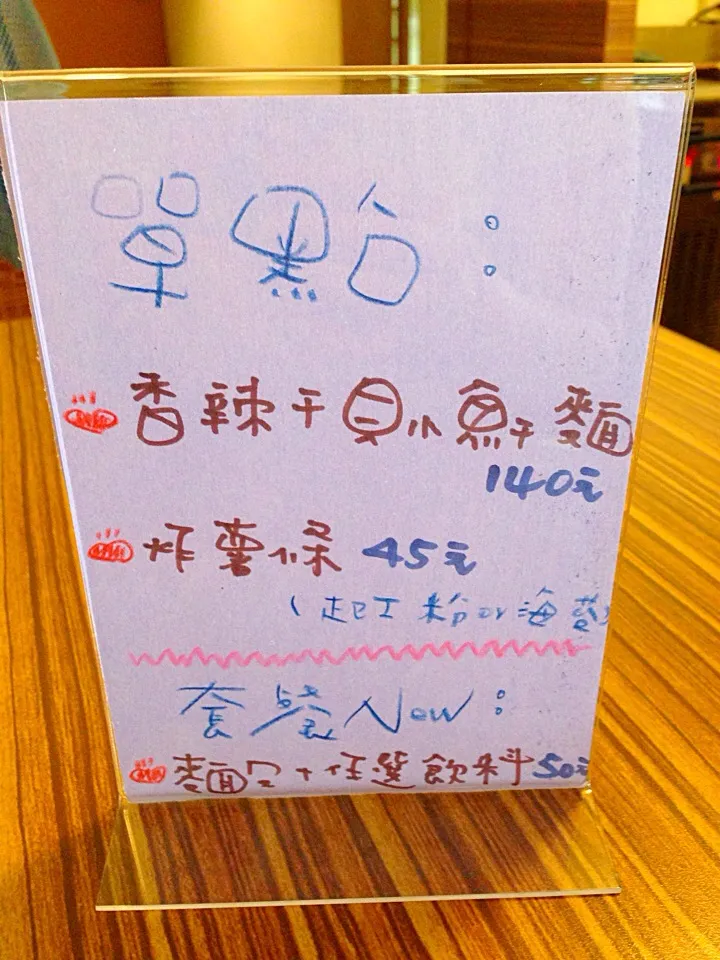 單點:
香辣干貝小魚干麵
140元
炸薯條 45元
(起士粉or海苔)
套餐New:
麵包+任選飲料50元